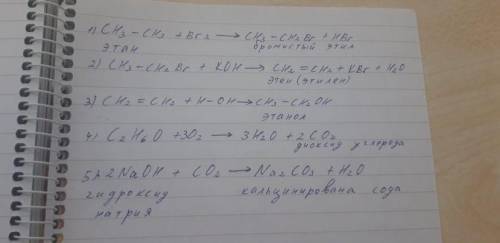 1) CH3 - CH3 + Br2 → CH3 - CH2Br + HBr
этан бромистый этил
2) CH3 - CH2Br + KOH → CH2 = CH2 + KBr + H2O
этен (этилен)
3) CH2 = CH2 + H - OH → CH3 - CH2OH
этанол
4) C2H6O + 3O2 → 3H2O + 2CO2
диоксид углерода
5) 2NaOH + CO2 → Na2CO3 + H2O
гидроксид кальцинирована сода
натрия